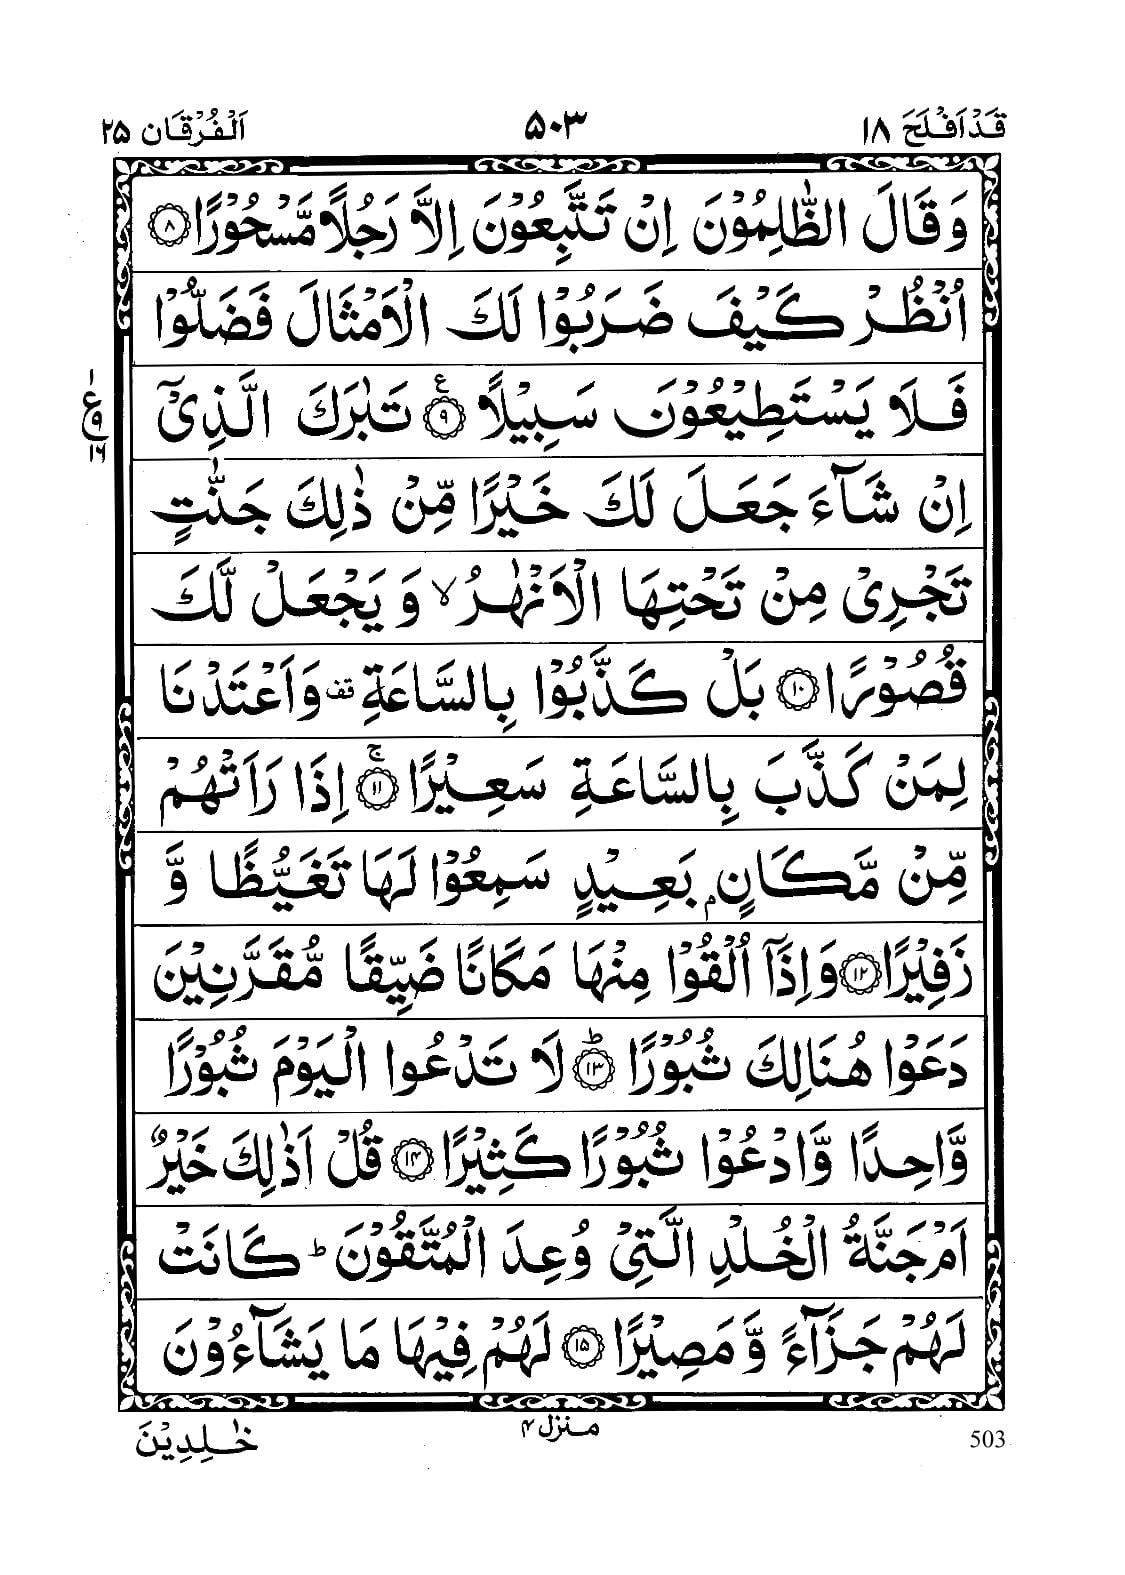 قَدْ اَفْلَحَ ١٨ ۵۰۳ اَلْفُرْقَان ۲۵
وَ قَالَ الظّٰلِمُوْنَ اِنْ تَتَّبِعُوْنَ اِلَّا رَجُلًا مَّسْحُوْرًا ۝۸
اُنْظُرْ كَيْفَ ضَرَبُوْا لَكَ الْاَمْثَالَ فَضَلُّوْا
فَلَا يَسْتَطِيْعُوْنَ سَبِيْلًا ۝۹ۧ تَبٰرَكَ الَّذِيْۤ
ع ۱ ۹ ۱۶
اِنْ شَآءَ جَعَلَ لَكَ خَيْرًا مِّنْ ذٰلِكَ جَنّٰتٍ
تَجْرِيْ مِنْ تَحْتِهَا الْاَنْهٰرُ ۙ وَ يَجْعَلْ لَّكَ
قُصُوْرًا ۝۱۰ بَلْ كَذَّبُوْا بِالسَّاعَةِ قف وَاَعْتَدْنَا
لِمَنْ كَذَّبَ بِالسَّاعَةِ سَعِيْرًا ۝۱۱ۚ اِذَا رَاَتْهُمْ
مِّنْ مَّكَانٍۭ بَعِيْدٍ سَمِعُوْا لَهَا تَغَيُّظًا وَّ
زَفِيْرًا ۝۱۲ وَاِذَاۤ اُلْقُوْا مِنْهَا مَكَانًا ضَيِّقًا مُّقَرَّنِيْنَ
دَعَوْا هُنَالِكَ ثُبُوْرًا ۝۱۳ؕ لَا تَدْعُوا الْيَوْمَ ثُبُوْرًا
وَّاحِدًا وَّادْعُوْا ثُبُوْرًا كَثِيْرًا ۝۱۴ قُلْ اَذٰلِكَ خَيْرٌ
اَمْ جَنَّةُ الْخُلْدِ الَّتِيْ وُعِدَ الْمُتَّقُوْنَ ؕ كَانَتْ
لَهُمْ جَزَآءً وَّ مَصِيْرًا ۝۱۵ لَهُمْ فِيْهَا مَا يَشَآءُوْنَ
خٰلِدِيْنَ منزل ۴ 503